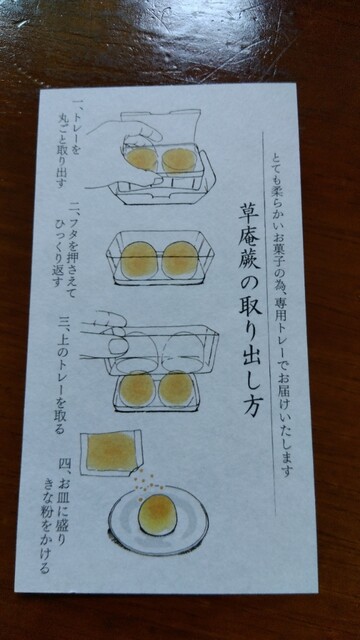 とても柔らかいお菓子の為、専用トレーでお届けいたします
草庵蕨の取り出し方
一、トレーを
丸ごと取り出す
二、フタを押さえて
ひっくり返す
三、上のトレーを取る
四、お皿に盛り
きな粉をかける